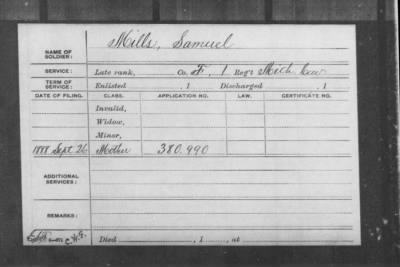 NAME OF SOLDIER: Mills, Samuel
SERVICE: Late rank, Co. F, 1 Reg't Mich. Cav
TERM OF SERVICE: Enlisted , 1 Discharged , 1
DATE OF FILING. CLASS. APPLICATION NO. LAW. CERTIFICATE NO.
Invalid,
Widow,
Minor,
1888 Sept. 26 Mother 380.990
ADDITIONAL SERVICES:
REMARKS:
Died , 1 , at